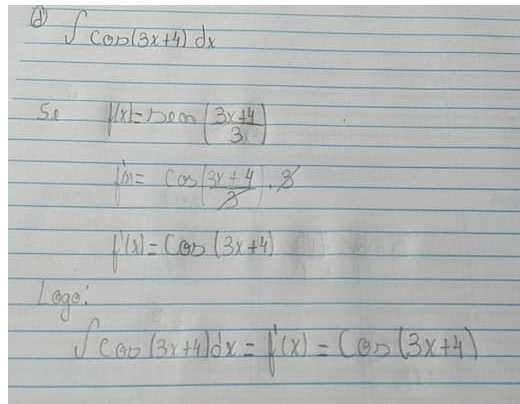 d) ∫ cos(3x+4) dx
Se f(x) = sen((3x+4)/3)
f'(x) = cos((3x+4)/3) . 3
f'(x) = cos(3x+4)
Logo:
∫ cos(3x+4)dx = f'(x) = cos(3x+4)